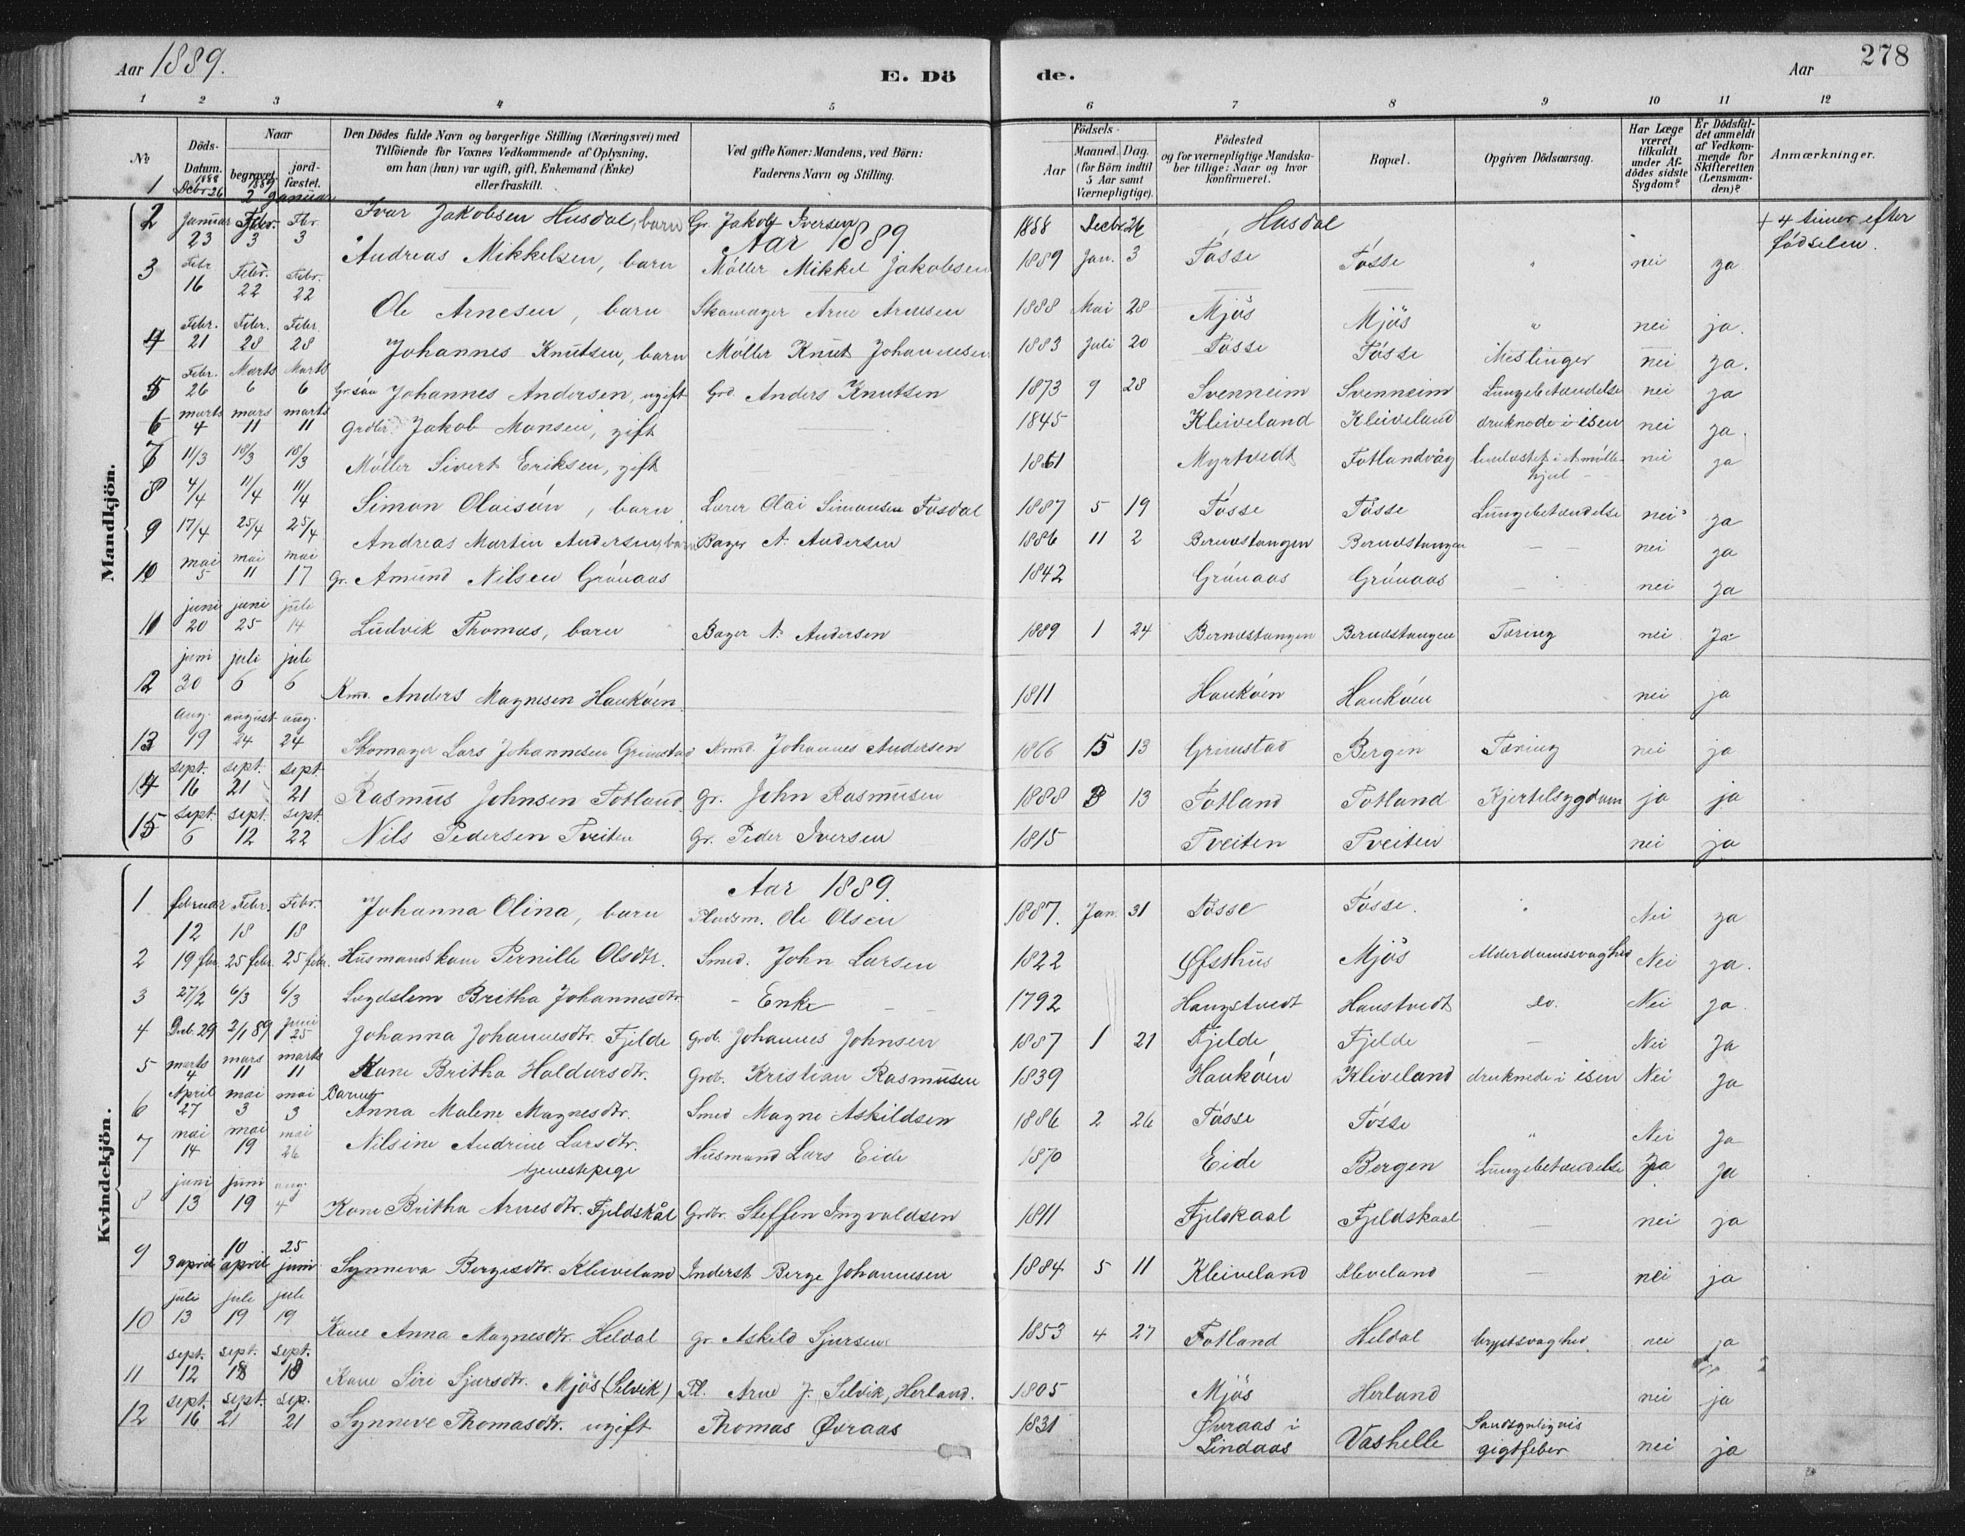 Aar 1889.
E. Dö
de.
Aar
278
1 2 3 4 5 6 7 8 9 10 11 12
No
Döds-
Datum.
Naar
begravet.
jord-
fæstet.
Den Dödes fulde Navn og borgerlige Stilling (Næringsvei) med
Tilföiende for Voxnes Vedkommende af Oplysning,
om han (hun) var ugift, gift, Enkemand (Enke)
eller fraskilt.
Ved gifte Koner: Mandens, ved Börn:
Faderens Navn og Stilling.
Födsels-
Aar
Maaned. Dag.
(for Börn indtil
5 Aar samt
Værnepligtige).
Födested
og for værnepligtige Mandska-
ber tillige: Naar og hvor
konfirmeret.
Bopæl.
Opgiven Dödsaarsag.
Har Læge
været
tilkaldt
under Af-
dödes sidste
Sygdom?
Er Dödsfal-
det anmeldt
af Vedkom-
mende for
Skifteretten
(Lensman-
den)?
Anmærkninger.
Mandkjön.
1 1888 Decbr 26 1889 2 9 Januar Ivar Jakobsen Husdal, barn Gr. Jakob Iversen 1888 Decbr 26 Husdal + 4 timer efter fødselen.
Aar 1889
2 Januar 23 Febr. 3 Febr. 3 Andreas Mikkelsen, barn Møller Mikkel Jakobsen 1889 Jan. 3 Tósse Tósse " nei ja
3 Febr 16 Febr. 22 Febr. 22 Ole Arnesen, barn Skomager Arne Arnesen 1888 Mai 28 Mjös Mjös " nei ja.
4 Febr. 21 Febr. 28 Febr. 28 Johannes Knutsen, barn Møller Knut Johannesen 1883 Juli 20 Tósse Tósse Meslinger nei ja.
5 Febr. 26 Marts 6 Marts 6 Gr.sön Johannes Andersen, ugift Grd. Anders Knutsen 1873 9 28 Svenneim Svenneim Lungebetændelse nei ja
6 marts 4 mars 11 marts 11 Grdbr. Jakob Monsen, gift 1845 Kleiveland Kleiveland druknede i isen nei ja.
7 11/3 18/3 18/3 Møller Sivert Eriksen, gift 1861 Myrtvedt Totlandvåg i et mölle-hjul nei ja
8 4/4 11/4 11/4 Simon Olaisön, barn Lærer Olai Simonsen Fosdal 1887 5 19 Tósse Tósse Lungebetændelse nei ja
9 17/4 25/4 25/4 Andreas Martin Andersen, barn Bager A. Andersen 1886 11 2 Berndstangen Berndstangen — nei ja
10 mai 5 mai 11 mai 17 Gr. Amund Nilsen Grónaas 1842 Grónaas Grónaas — nei ja
11 juni 20 juni 25 juli 14 Ludvik Thomas, barn Bager A. Andersen 1889 1 24 Berndstangen Berndstangen Tæring nei Ja
12 juni 30 juli 6 juli 6 Kmd. Anders Magnesen Haukóen 1811 Haukóen Haukóen nei ja
13 aug. 19 august 24 aug. 24 Skomager Lars Johannesen Grimstad Kmd. Johannes Andersen 1866 5 13 Grimstad Bergen Tæring nei ja
14 sept. 16 sept. 21 sept 21 Rasmus Johnsen Totland Gr. John Rasmusen 1888 3 13 Totland Totland Kjertelsygdom ja ja
15 sept. 6 sept. 12 sept. 22 Nils Pedersen Tveiten Gr. Peder Iversen 1815 Tveiten Tveiten nei ja
Kvindekjön.
Aar 1889.
1 februar 12 Febr. 18 Febr. 18 Johanna Olina, barn Pladsm. Ole Olsen 1887. Jan. 31 Tósse Tósse. " Nei ja
2 19 fbr 25 febr. 25 febr. Husmandskone Pernille Olsdtr. Smed. John Larsen 1822 Øfsthus Mjös Alderdomssvaghed Nei ja.
3 27/2 6/3 6/3 Lægdslem Britha Johannesdtr — Enke — 1792 Haugstvedt Haustvedt do. Nei ja.
4 Decb. 29 2/1 89 Juni 25 Johanna Johannesdtr. Fjelde Grdb. Johannes Johnsen 1887 1 21 Fjelde Fjelde — Nei Ja
5 marts 4 mars 11 marts 11 Kone Britha Haldorsdtr. Grdb. Kristian Rasmusen 1839 Haukóen Kliveland druknede i isen Nei Ja
6 April 27 mai 3 mai 3 Barnet Anna Malene Magnesdtr. Smed Magne Askildsen 1886 2 26 Tósse Tósse " Nei Ja
7 mai 14 mai 19 mai 26 Nilsine Andrine Larsdtr. tjenestepige Husmand Lars Eide 1870 Eide Bergen Lungebetændelse Ja Ja
8 juni 13 juni 19 aug. 4 Kone Britha Arnesdtr. Fjeldskål Grdbr. Steffen Ingvaldsen 1811 Fjelskaal Fjeldskaal — nei ja
9 3 april 10 april 25 juni Synneva Bergesdtr. Kleiveland Inderst Berge Johannesen 1884 5 11 Kleiveland Kleveland — nei ja
10 juli 13 juli 19 juli 19 Kone Anna Magnesdtr. Heldal Gr. Askeld Sjursen 1853 4 27 Totland Heldal brystsvaghed. nei ja
11 sept. 12 sept. 18 sept. 18 Kone Siri Sjursdtr. Mjös (Selvik) Pl. Arne J. Selvik, Herland. 1805 Mjös Herland nei ja
12 sept. 16 sept. 21 sep. 21 Synneve Thomasdtr. ugift Thomas Øvraas 1831 Øvraas i Lindaas Vashelle Sandsynligvis gigtfeber nei ja